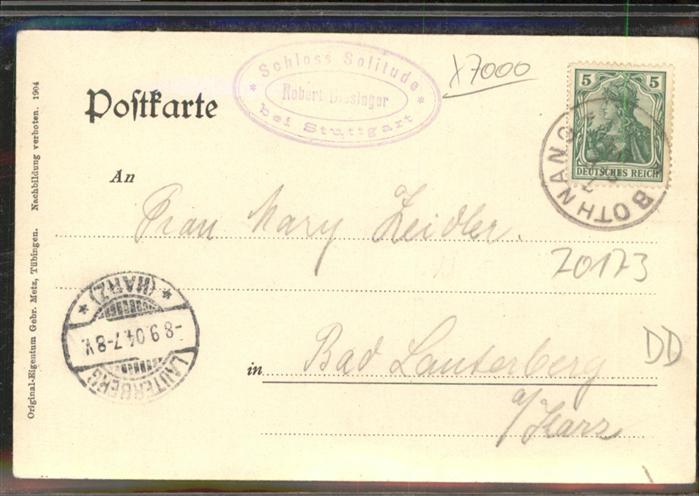 Postkarte
* Schloss Solitude *
Robert Diesinger
bei Stuttgart
X7000
5 5
DEUTSCHES REICH
BOTHNANG
An
Frau Mary Zeidler.
20173
DD
in Bad Lauterberg
a/Harz
LAUTERBERG
-8.9.04.7-8V.
* (HARZ) *
Original-Eigentum Gebr. Metz, Tübingen. Nachbildung verboten. 1904